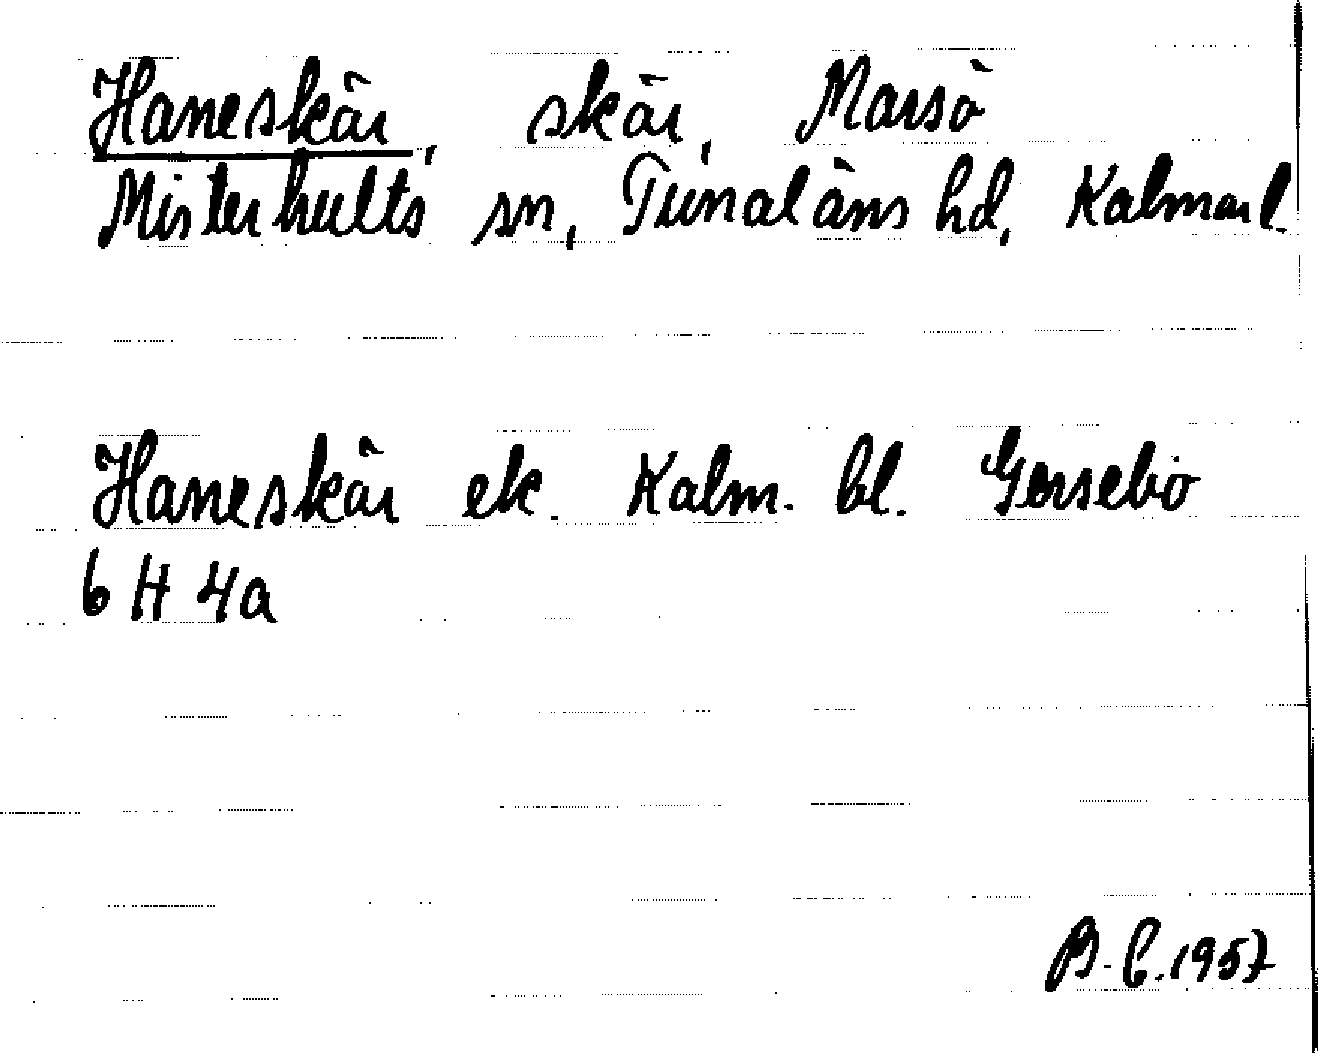 Haneskär, skär, Marsö
Misterhults sn, Tunaläns hd, Kalmar l.
Haneskär ek. Kalm. bl. Gersebo
6 H 4a
B. C. 1957